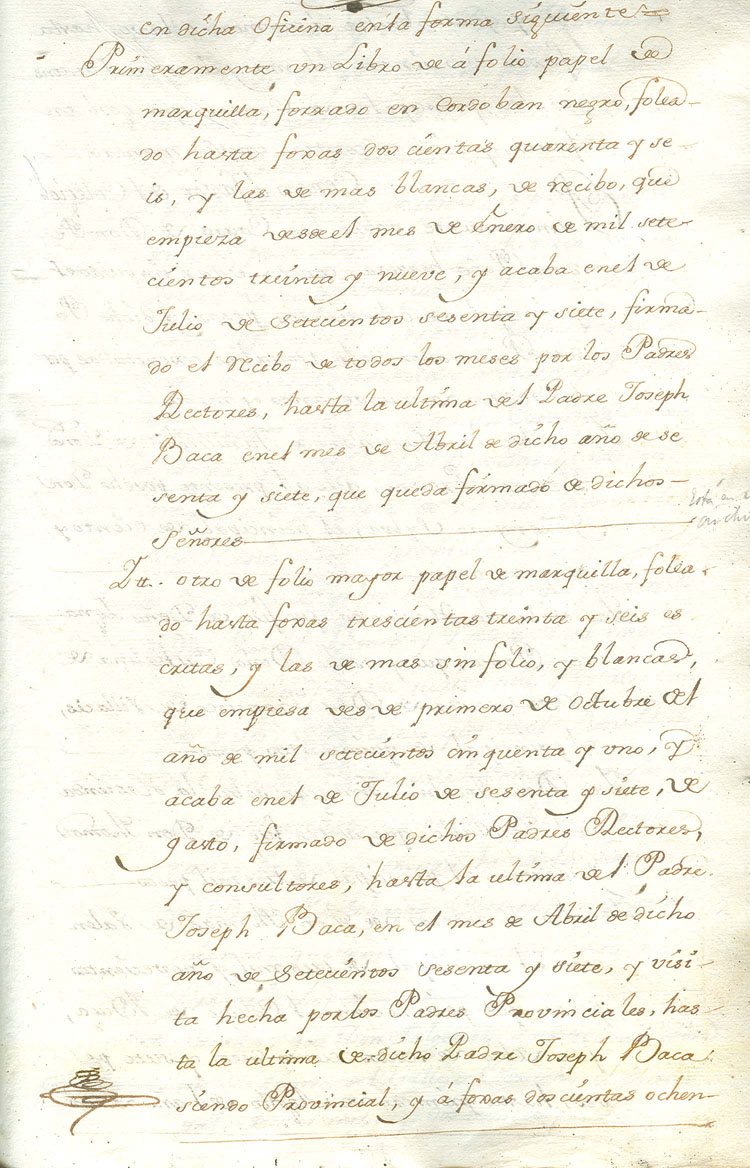 en dicha Oficina enla forma siguiente
Primeramente un Libro de á folio papel de
marquilla, forrado en Cordoban negro, folea-
do hasta foxas dos cientas quarenta y se-
is, y las de mas blancas, de recibo, que
empieza desde el mes de Enero de mil sete-
cientos treinta y nueve, y acaba enel de
Julio de Setecientos sesenta y siete, firma-
do el Recibo de todos los meses por los Padres
Rectores, hasta la ultima del Padre Joseph
Baca enel mes de Abril de dicho año de se
senta y siete, que queda formado de dichos
Señores
Itt. otro de folio mayor papel de marquilla, folea-
do hasta foxas trescientas treinta y seis es
critas, y las de mas sin folio, y blancas,
que empiesa des de primero de Octubre del
año de mil setecientos cinquenta y uno, y
acaba enel de Julio de sesenta y siete, de
gasto, firmado de dichos Padres Rectores,
y consultores, hasta la ultima del Padre
Joseph Baca, en el mes de Abril de dicho
año de Setecientos sesenta y siete, y visi-
ta hecha por los Padres Provinciales, has-
ta la ultima de dicho Padre Joseph Baca
siendo Provincial, y á foxas doscientas ochen-